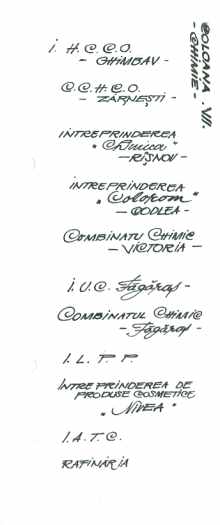 COLOANA .VII.
- CHIMIE -
I. H.C.C.O.
- GHIMBAV -
C.C.H.C.O.
- ZĂRNEȘTI -
ÎNTREPRINDEREA
"Chimica"
- RÎȘNOV -
ÎNTREPRINDEREA
"Colorom"
- CODLEA -
COMBINATU CHIMIC
- VICTORIA -
I.U.C. Făgăraș -
COMBINATUL CHIMIC
- Făgăraș -
I. L. T. P.
ÎNTREPRINDEREA DE
PRODUSE COSMETICE
"NIVEA"
I.A.T.C.
RAFINĂRIA